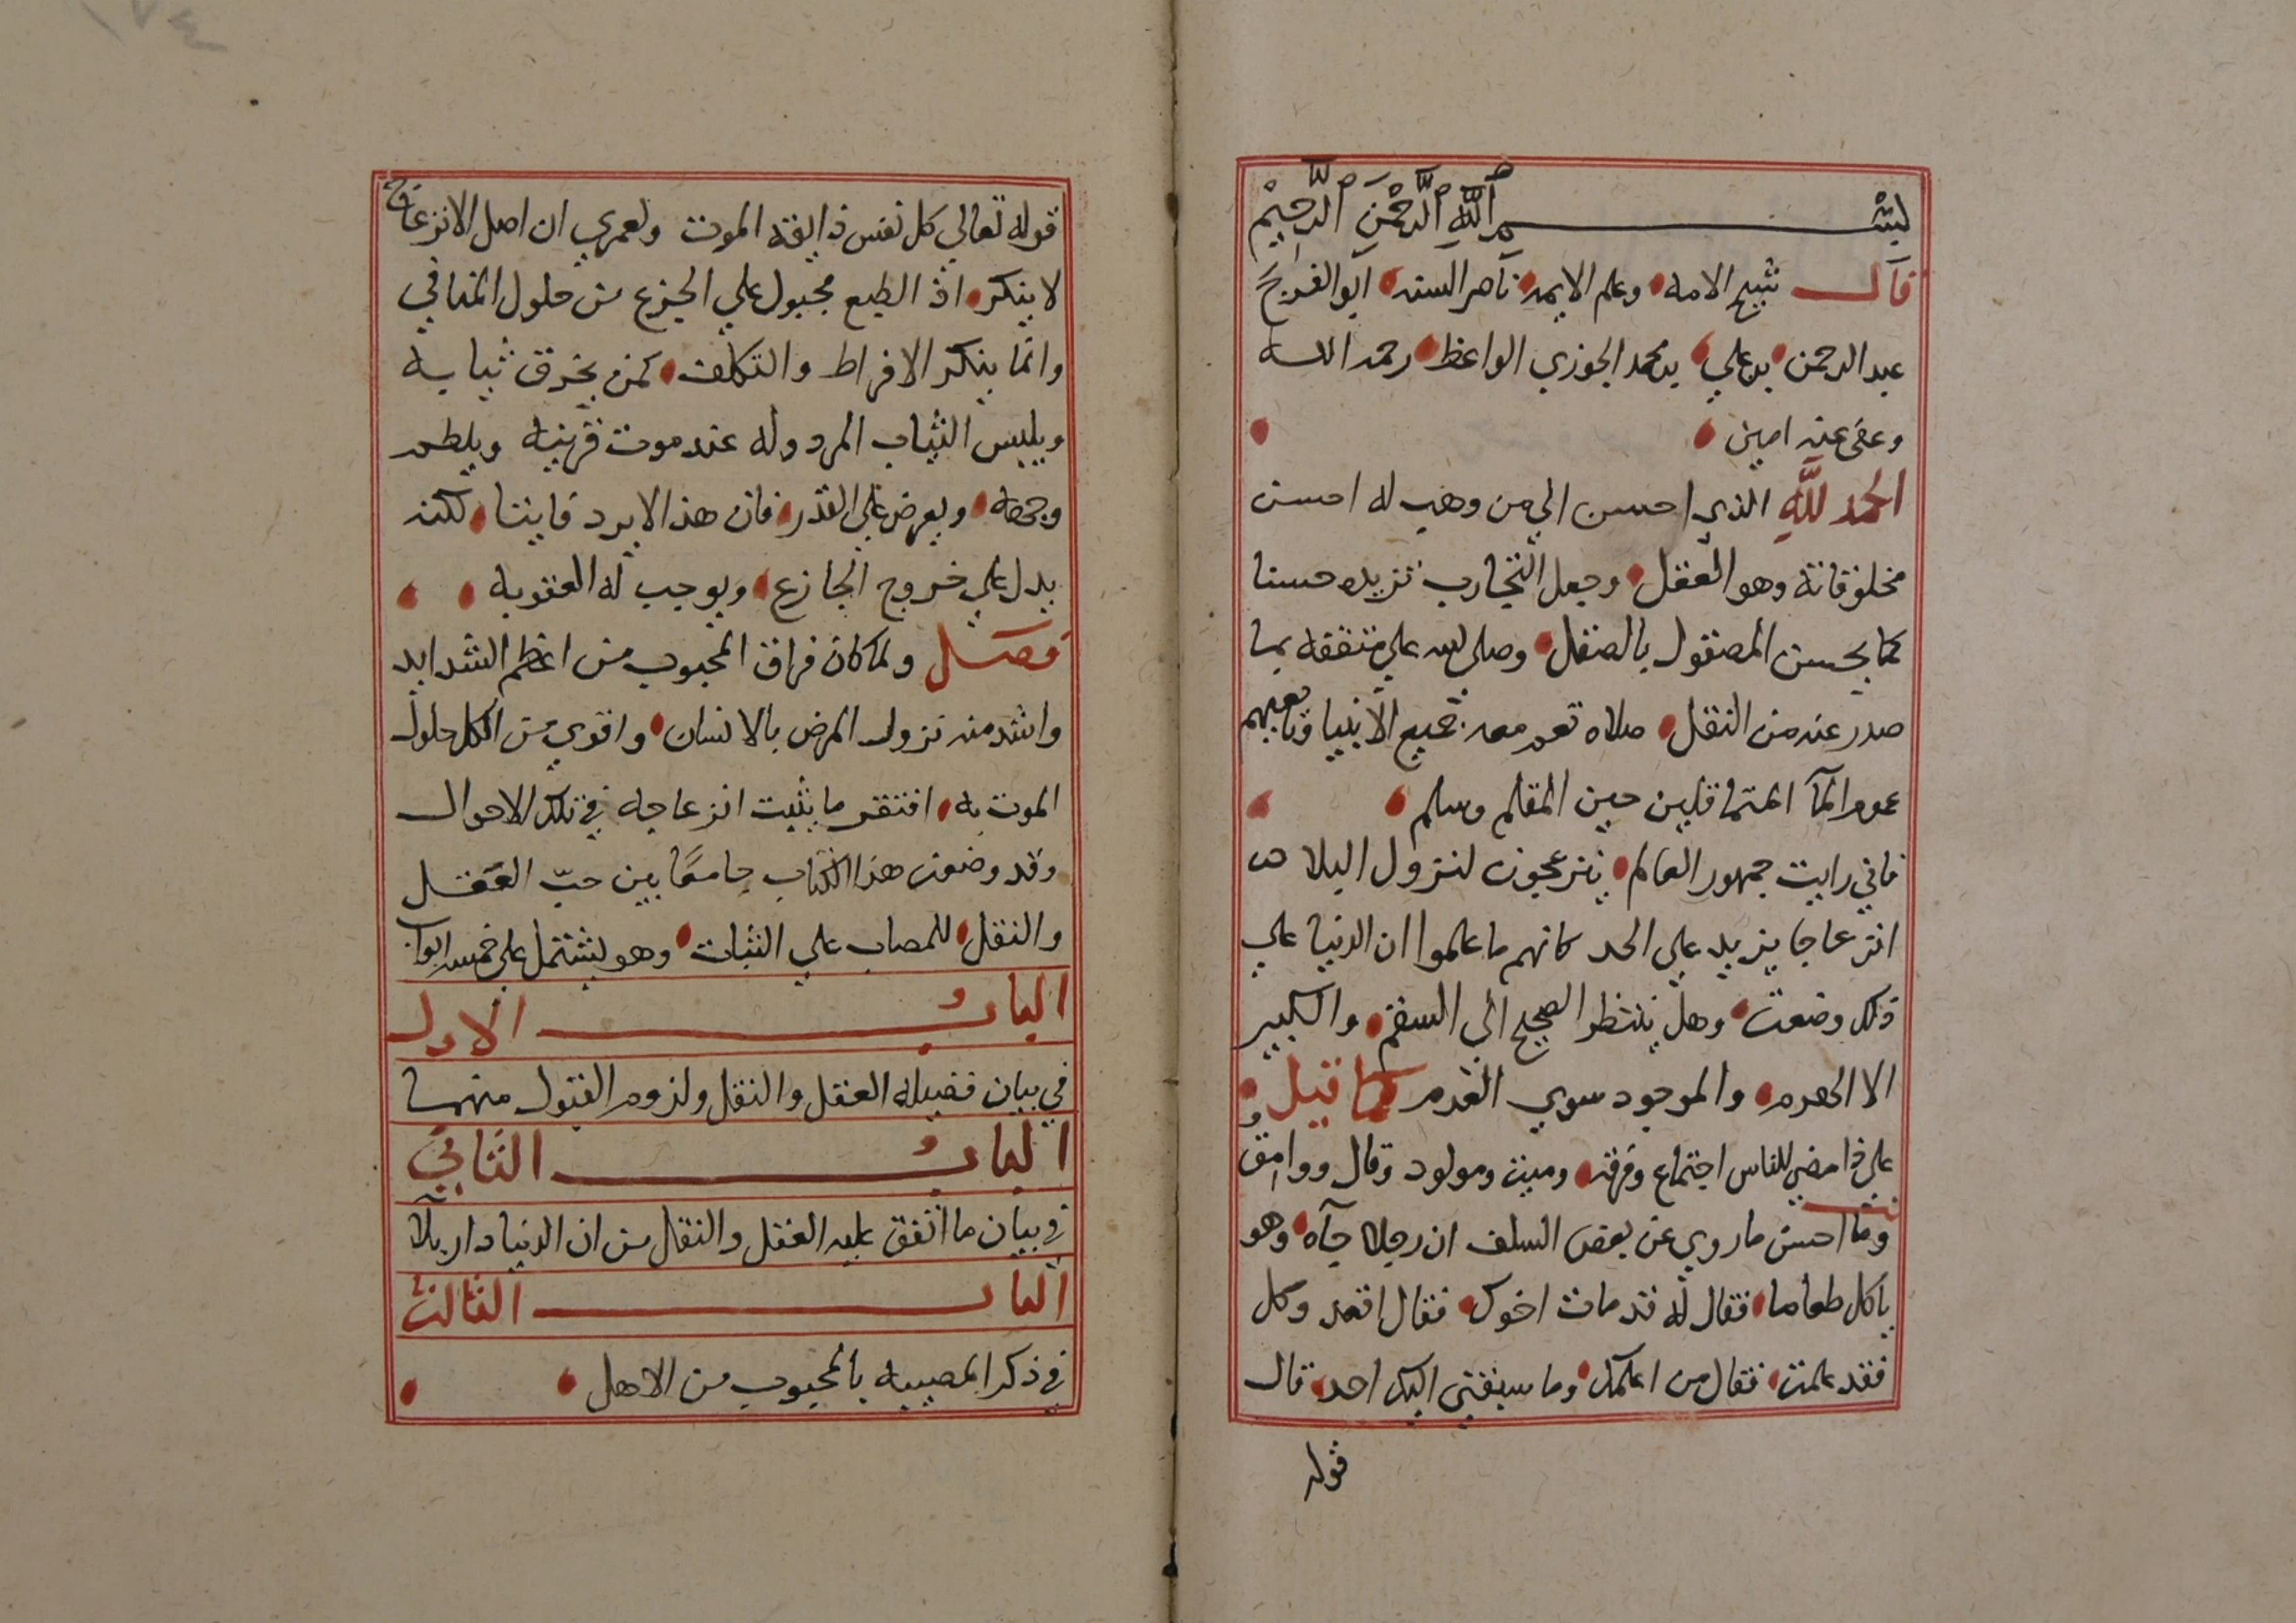 بسم الله الرحمن الرحيم
قال شيخ الامه وعلم الايمه ناصر السنه ابو الفرج
عبد الرحمن بن علي بن محمد الجوزي الواعظ رحمه الله
وعفى عنه امين
الحمد لله الذي احسن الي من وهب له احسن
مخلوقاته وهو العقل وجعل التجارب تزيده حسنا
كما يحسن المصقول بالصقل وصلى الله علي متفقه بما
صدر عنه من النقل صلاه تعم معه جميع الانبيا وتابعيهم
عموم المآ المتماقلين حين المقلم وسلم
فاني رايت جمهور العالم ينزعجون لنزول البلاء
انزعاجا يزيد علي الحد كانهم ما علموا ان الدنيا علي
ذلك وضعت وهل ينتظر الصحيح الي السقم والكبير
الا الهرم والموجود سوي العدم كما قيل
على ذا مضي للناس اجتماع وفرقه وميت ومولود وقال ووامق
وما احسن ما روي عن بعض السلف ان رجلا جآه وهو
ياكل طعاما فقال له قد مات اخوك فقال اقعد وكل
فقد علمت فقال من اعلمك وما سبقني اليك احد قال
قوله
قوله تعالي كل نفس ذايقه الموت ولعمري ان اصل الانزعاج
لا ينكر اذ الطبع مجبول علي الجزع من حلول المنافي
وانما ينكر الافراط والتكلف كمن يخرق ثيابه
ويلبس الثياب المردوله عند موت قرينه ويلطم
وجهه ويعرض علي القدر فان هذا لا يرد فايتا لكنه
يدل علي خروج الجازع ويوجب له العقوبه
فصل ولما كان فراق المحبوب من اعظم الشدايد
واشد منه نزول المرض بالانسان واقوي من الكل حلول
الموت به افتقر ما يثبت انزعاجه في تلك الاحوال
وقد وضعت هذا الكتاب جامعا بين حب العقل
والنقل للمصاب علي الثبات وهو يشتمل علي خمسه ابواب
الباب الاول
في بيان فضيله العقل والنقل ولزوم القبول منهما
الباب الثاني
في بيان ما اتفق عليه العقل والنقل من ان الدنيا دار بلآ
الباب الثالث
في ذكر المصيبه بالمحبوب من الاهل
١٧٤